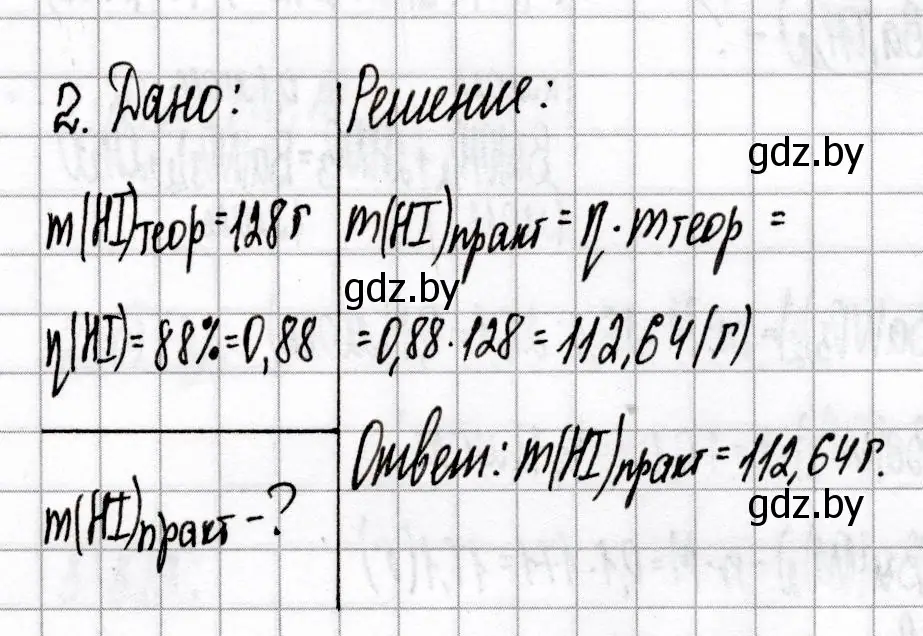 2. Дано:
m(HI)теор = 128 г
η(HI) = 88% = 0,88
m(HI)практ - ?
Решение:
gdz.by
m(HI)практ = η · mтеор =
gdz.by
= 0,88 · 128 = 112,64 (г)
Ответ: m(HI)практ = 112,64 г.
gdz.by